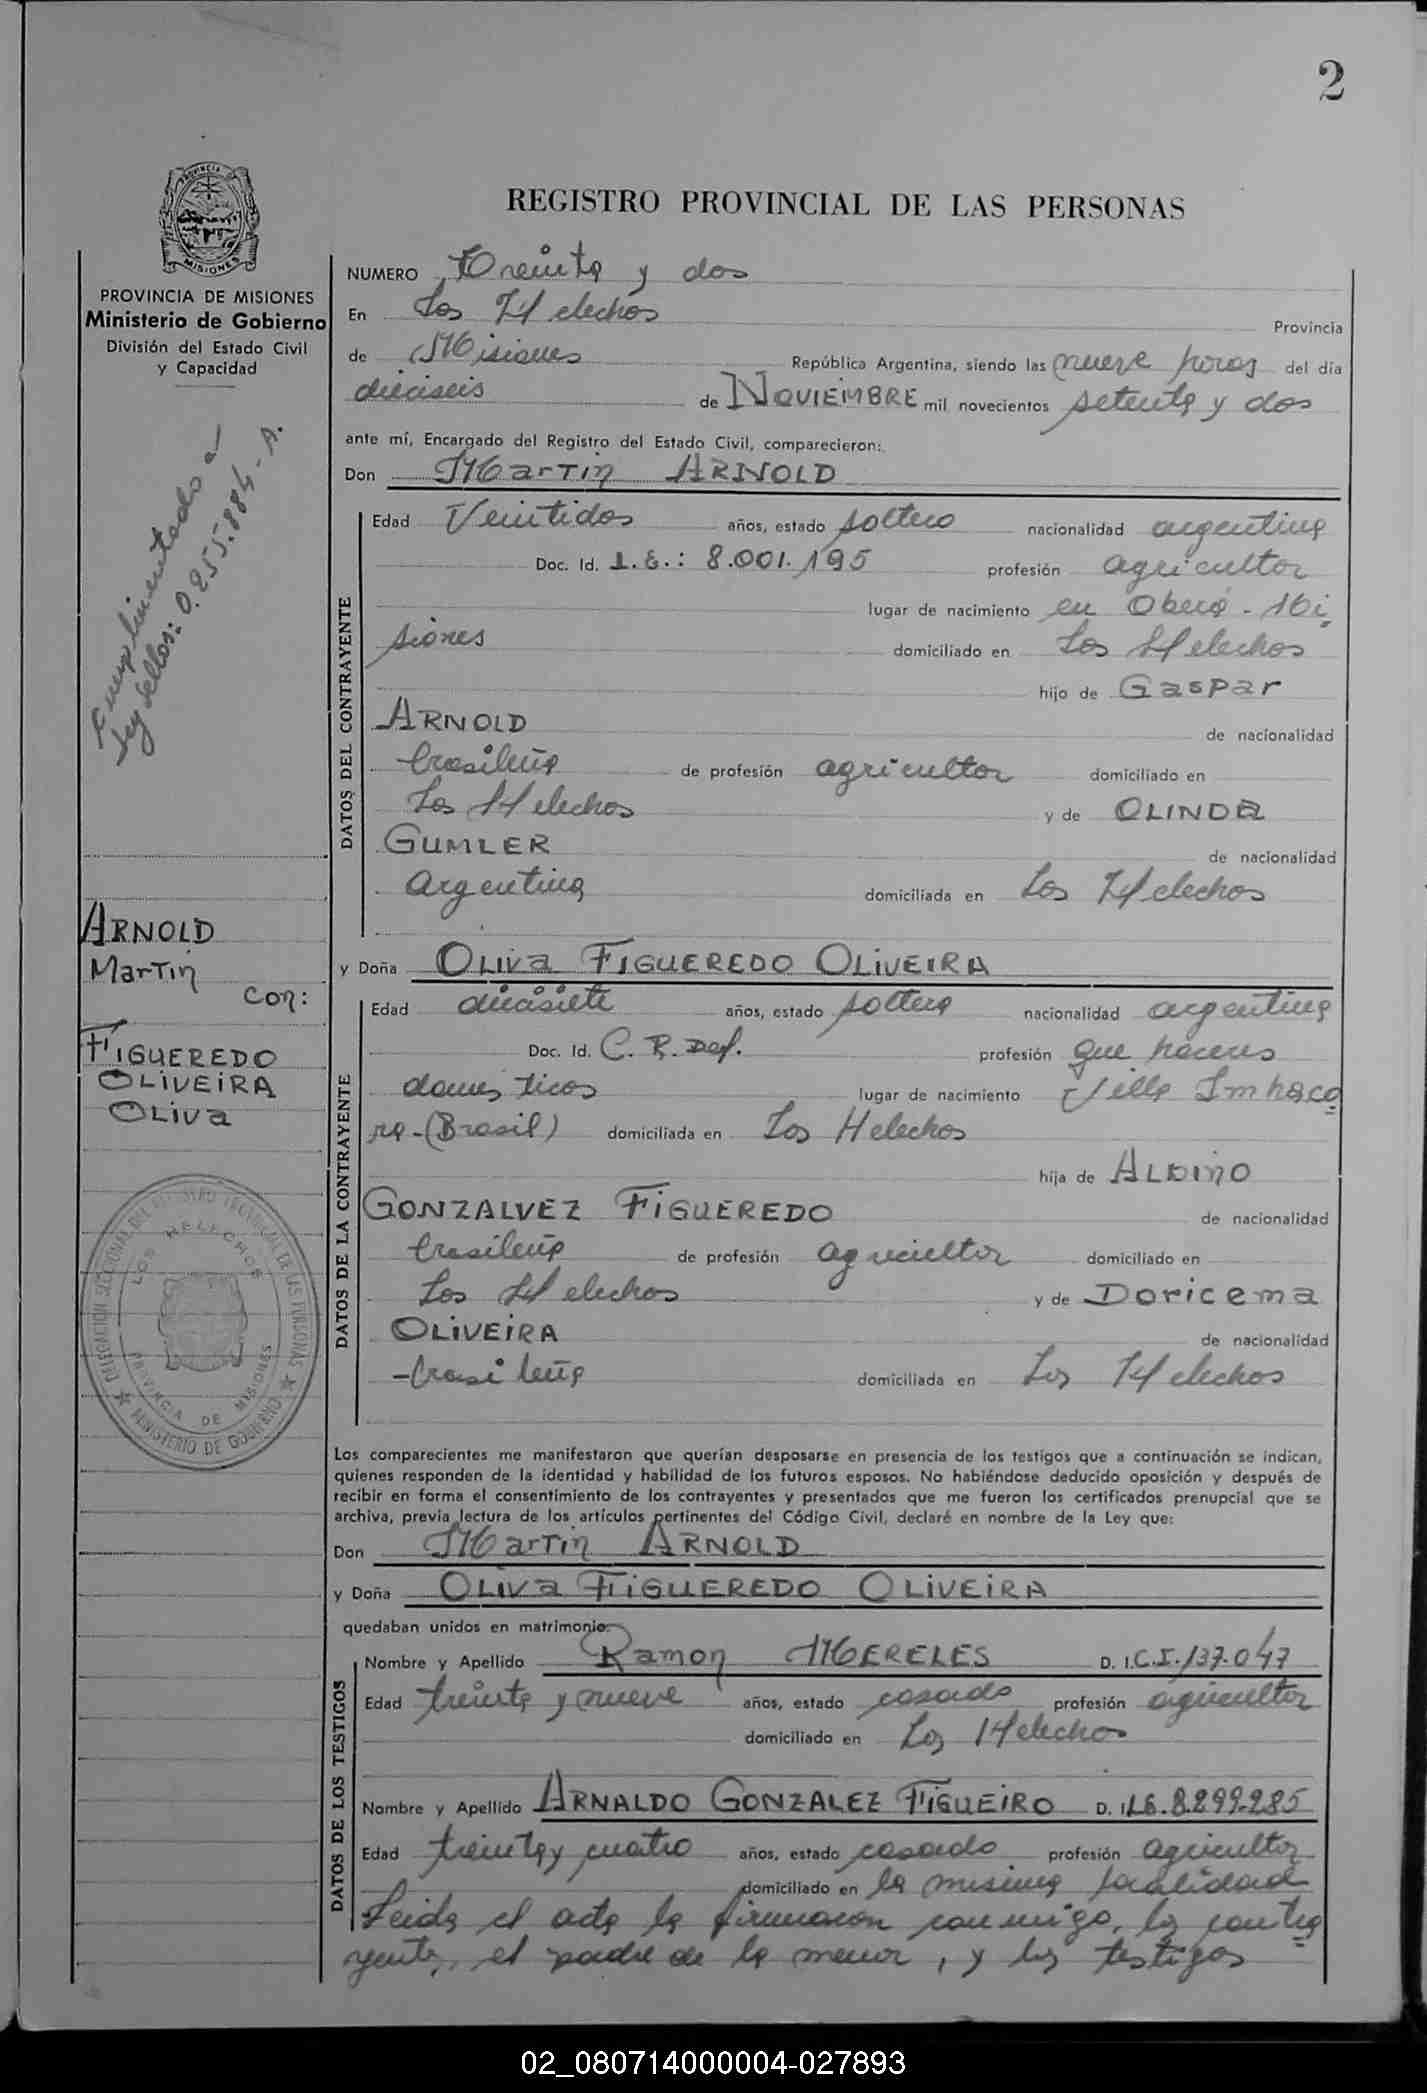 2
PROVINCIA
MISIONES
REGISTRO PROVINCIAL DE LAS PERSONAS
PROVINCIA DE MISIONES
Ministerio de Gobierno
División del Estado Civil
y Capacidad
Cumplimentado
ley sellos: 0.255.884-A.
ARNOLD
Martin
con:
FIGUEREDO
OLIVEIRA
OLIVa
DELEGACION SECCIONAL DEL REGISTRO PROVINCIAL DE LAS PERSONAS
LOS HELECHOS
PROVINCIA DE MISIONES
MINISTERIO DE GOBIERNO
NUMERO Treinta y dos
En Los Helechos Provincia
de Misiones República Argentina, siendo las nueve horas del día
dieciseis de NOVIEMBRE mil novecientos setenta y dos
ante mí, Encargado del Registro del Estado Civil, comparecieron:
Don Martin ARNOLD
DATOS DEL CONTRAYENTE
Edad Veintidos años, estado soltero nacionalidad argentina
Doc. Id. L.E.: 8.001.195 profesión agricultor
lugar de nacimiento en Oberá - Mi
siones domiciliado en Los Helechos
hijo de Gaspar
ARNOLD de nacionalidad
brasileña de profesión agricultor domiciliado en
Los Helechos y de OLINDA
GUMLER de nacionalidad
argentina domiciliada en Los Helechos
y Doña OLIVa FIGUEREDO OLIVEIRA
DATOS DE LA CONTRAYENTE
Edad diecisiete años, estado soltera nacionalidad argentina
Doc. Id. C. R. Def. profesión que haceres
domesticos lugar de nacimiento Villa
ra-(Brasil) domiciliada en Los Helechos
hija de ALBINO
GONZALVEZ FIGUEREDO de nacionalidad
brasileña de profesión agricultor domiciliado en
Los Helechos y de Doricema
OLIVEIRA de nacionalidad
-brasileña domiciliada en Los Helechos
Los comparecientes me manifestaron que querían desposarse en presencia de los testigos que a continuación se indican,
quienes responden de la identidad y habilidad de los futuros esposos. No habiéndose deducido oposición y después de
recibir en forma el consentimiento de los contrayentes y presentados que me fueron los certificados prenupcial que se
archiva, previa lectura de los artículos pertinentes del Código Civil, declaré en nombre de la Ley que:
Don Martin ARNOLD
y Doña OLIVa FIGUEREDO OLIVEIRA
quedaban unidos en matrimonio.
DATOS DE LOS TESTIGOS
Nombre y Apellido Ramon MERELES D. I.C.I. 137.047
Edad treinta y nueve años, estado casado profesión agricultor
domiciliado en Los Helechos
Nombre y Apellido ARNALDO GONZALEZ FIGUEIRO D. I.L.E. 8.299.285
Edad treinta y cuatro años, estado casado profesión agricultor
domiciliado en la misma localidad
Leida el acta la firmaron conmigo, los contra
yentes, el padre de la menor, y los testigos
02_080714000004-027893